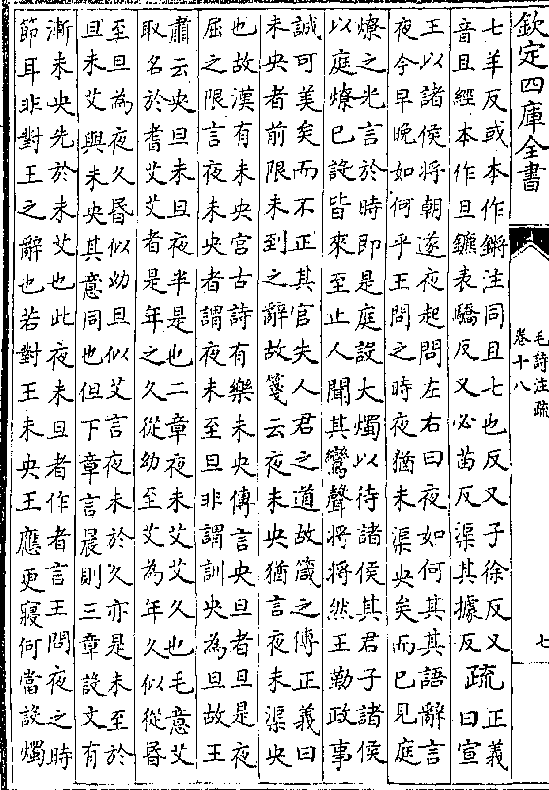 欽定四庫全書
毛詩注疏
卷十八
七
七羊反或本作鏘注同且七也反又子徐反又
音且經本作旦鑣表驕反又必苗反渠其據反
疏
正義
曰宣
王以諸侯將朝遂夜起問左右曰夜如何其其語辭言
夜今早晚如何乎王問之時夜猶未渠央矣而已見庭
燎之光言於時即是庭設大燭以待諸侯其君子諸侯
以庭燎已設皆來至止人聞其鸞聲將將然王勤政事
誠可美矣而不正其官失人君之道故箴之傳正義曰
未央者前限未到之辭故箋云夜未央猶言夜未渠央
也故漢有未央宮古詩有樂未央傳言央旦者旦是夜
屈之限言夜未央者謂夜未至旦非謂訓央為旦故王
肅云央旦未旦夜半是也二章夜未艾艾久也毛意艾
取名於耆艾艾者是年之久從幼至艾為年久似從昏
至旦為夜久昏似幼旦似艾言夜未於久亦是未至於
旦未艾與未央其意同也但下章言晨則三章設文有
漸未央先於未艾也此夜未旦者作者言王問夜之時
節耳非對王之辭也若對王未央王應更寢何當設燭